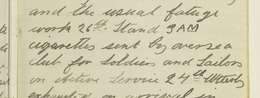 and the usual fatigue
work 26th. Stand 9 AM
cigarettes sent by oversea
club for Soldiers and Sailors
on Active Service 24th
on arrival in